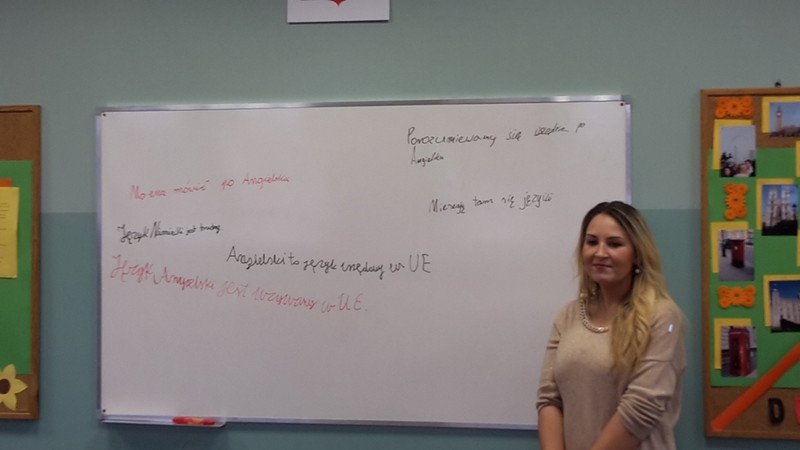 Porozumiewamy się wszędzie po
Angielsku
Można mówić po Angielsku
Mieszają tam się języki
Język Niemiecki jest trudny.
Angielski to język urzędowy w UE
Język Angielski jest używany w UE.
D